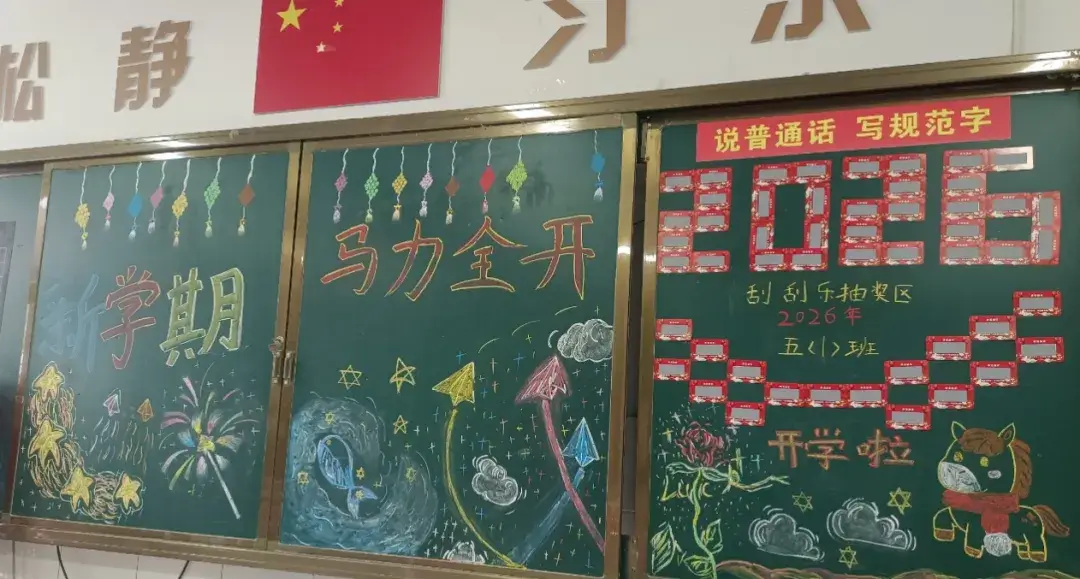 松静
说普通话 写规范字
2026
新学期
马力全开
刮刮乐抽奖区
2026年
五〈1〉班
开学啦